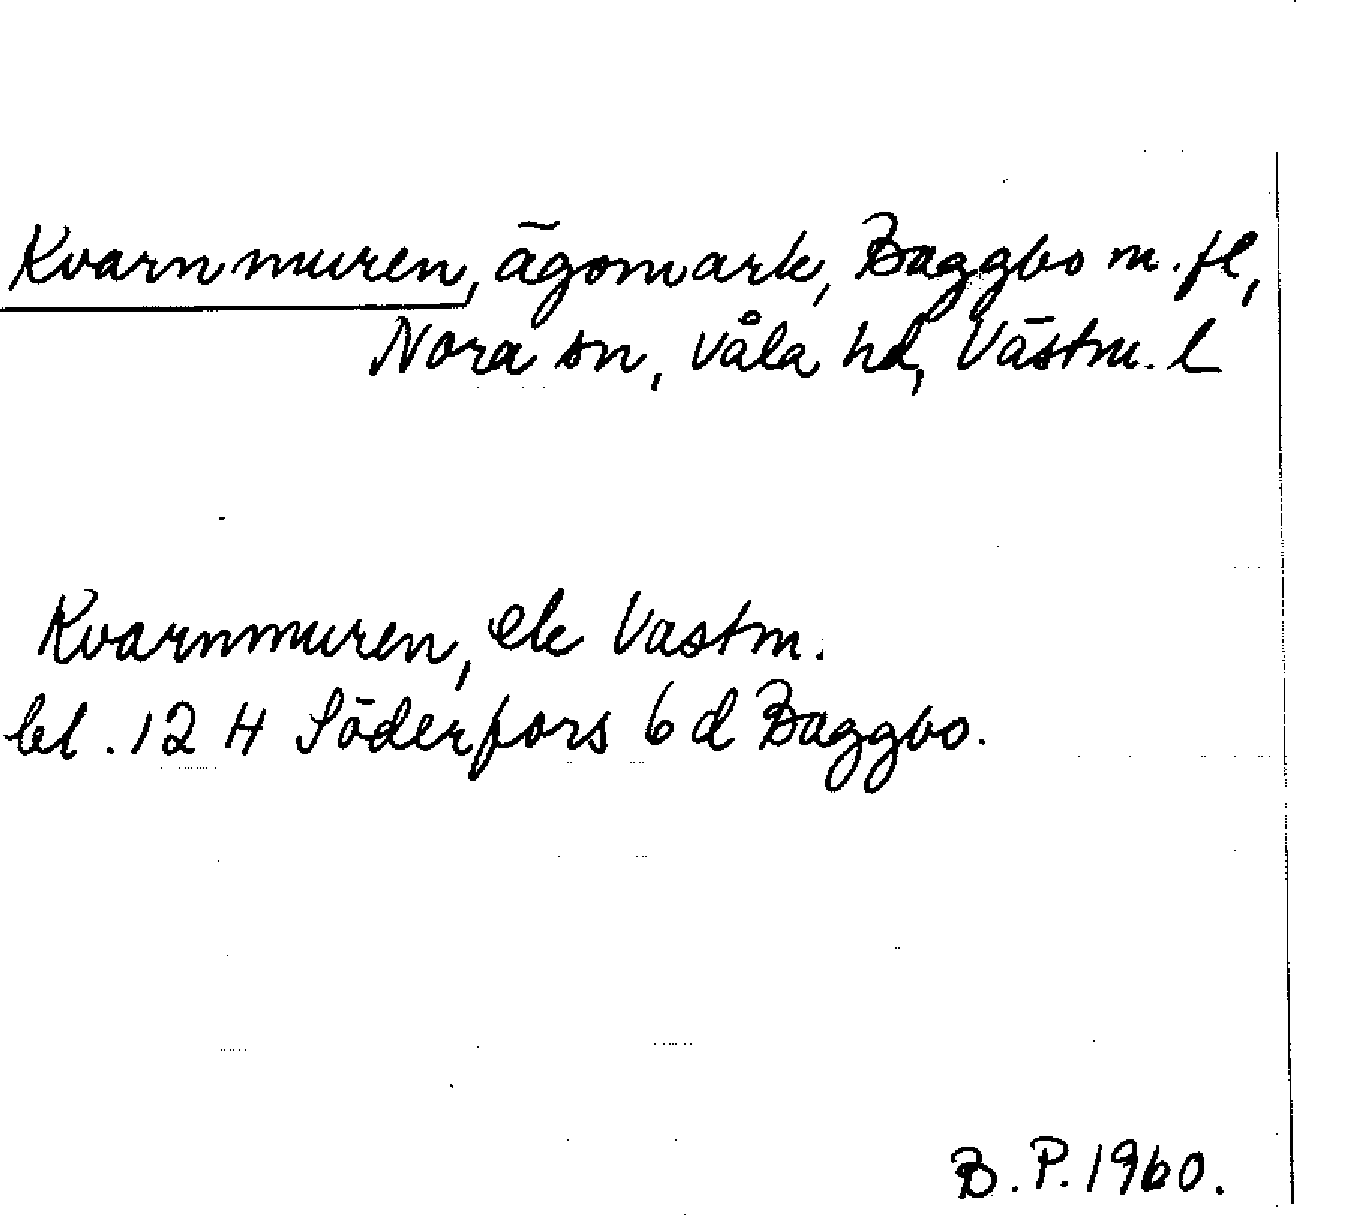 Kvarnmuren, ägomark, Baggbo m.fl,
Nora sn, Våla hd, Västm. l
Kvarnmuren, ek Vastm.
bl. 12 H Söderfors 6 d Baggbo.
B.P. 1960.